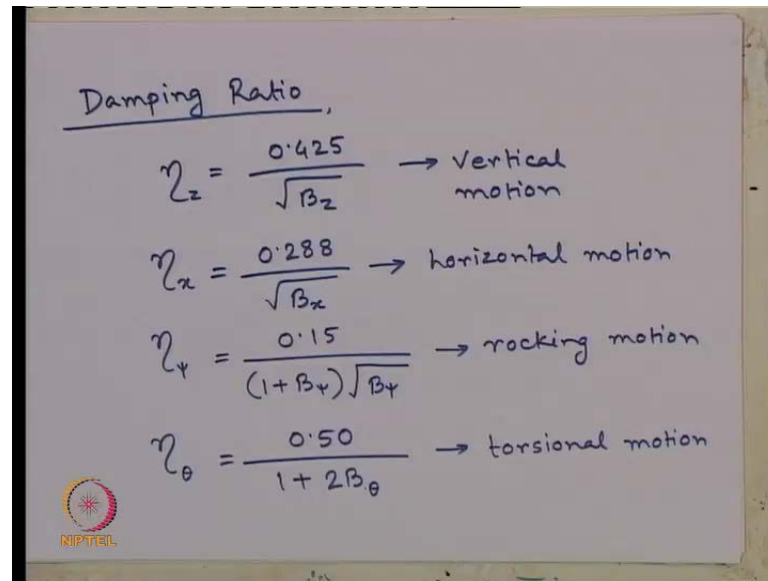 Damping Ratio,
η_z = 0.425 / √B_z → vertical motion
η_x = 0.288 / √B_x → horizontal motion
η_ψ = 0.15 / (1 + B_ψ)√B_ψ → rocking motion
η_θ = 0.50 / 1 + 2B_θ → torsional motion
NPTEL